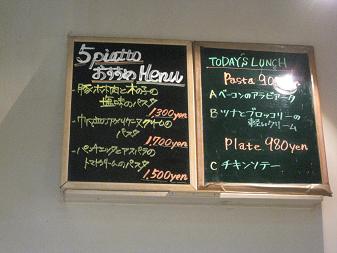 5piatto
おすすめ Menu
木の子の
塩味のパスタ
1,300yen
クリームの
パスタ
1,700yen
・パンチェッタとアスパラの
トマトクリームのパスタ
1,500yen
TODAY'S LUNCH
Pasta
A ベーコンのアラビアータ
B ツナとブロッコリーの
軽いクリーム
Plate 980yen
C チキンソテー